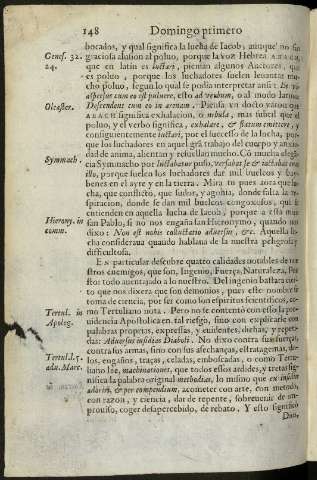 148 Domingo primero
bocados, y qual significa la lucha de Iacob, aunque no sin
Genes. 32. graciosa alusion al poluo, porque la voz Hebrea ABACH,
24. que en latin es luctari, piensan algunos Auctores, que
es poluo, porque los luchadores suelen leuantar mu-
cho poluo, segun lo qual se podia interpretar ansi:
aspersit cum eo est puluere, esto ad verbum, o al modo latino
Oleaster. Descendens cum eo in arenam. Piensa vn docto varon que
ABACH significa exhalacion, o nebula, mas sutil que el
poluo, y el verbo significa, exhalare, & flatum emittere, y
consiguientemente luctari, por el successo de la lucha, por-
que los luchadores en aquel gra trabajo del cuerpo y ansie-
dad de anima, alientan y resuellan mucho. Cõ mucha elegã-
Symmach. cia Symmacho por luctabatur puso, versabat se & iactabat cum
illo, porque suelen los luchadores dar mil buelcos y bay-
benes en el ayre y en la tierra. Mira tu pues aora que lu-
cha, que conflicto, que sudor, y agonia, donde falta la re-
spiracion, donde se dan mil buelcos congoxosos, que se
entienden en aquella lucha de Iacob, porque a esta mira
Hierony. in san Pablo, si no nos engaña san Hieronymo, quando nos
comm. dixo: Non est nobis colluctatio aduersus, &c. Aquella lu-
cha consideraua quando hablaua de la nuestra peligrosa y
difficultosa.
EN particular descubre quatro calidades notables de nue-
stros enemigos, que son, Ingenio, Fuerça, Naturaleza, Pue-
stos todo auentajado a los nuestros. Del ingenio bastara çui-
to que nos dixera que son demonios, pues este nombre se
toma de ciencia, por ser como son espiritos scientificos, co-
Tertul. in mo Tertuliano nota. Pero no se contentó con esso la pro-
Apolog. uidencia Apostolica en tal riesgo, sino con explicarle con
palabras proprias, expressas, y euidentes, dichas, y repeti-
das: Aduersus insidias Diaboli. No dixo contra sus fuerças,
contra sus armas, sino con sus afechanças, estratagemas, do-
Tertul.l.5. los, engaños, traças, celadas, emboscadas, o como Tertu-
adu. Marc. liano lée, machinationes, que todos essos ardides, y tretas sig-
nifica la palabra original methodias, lo mismo que ex insidiis
adoriri, & per compendium, acometer con arte, con metodo,
con razon, y ciencia, dar de repente, sobreuenir de im-
prouiso, coger desapercebido, de rebato. Y esto significó
Dau,